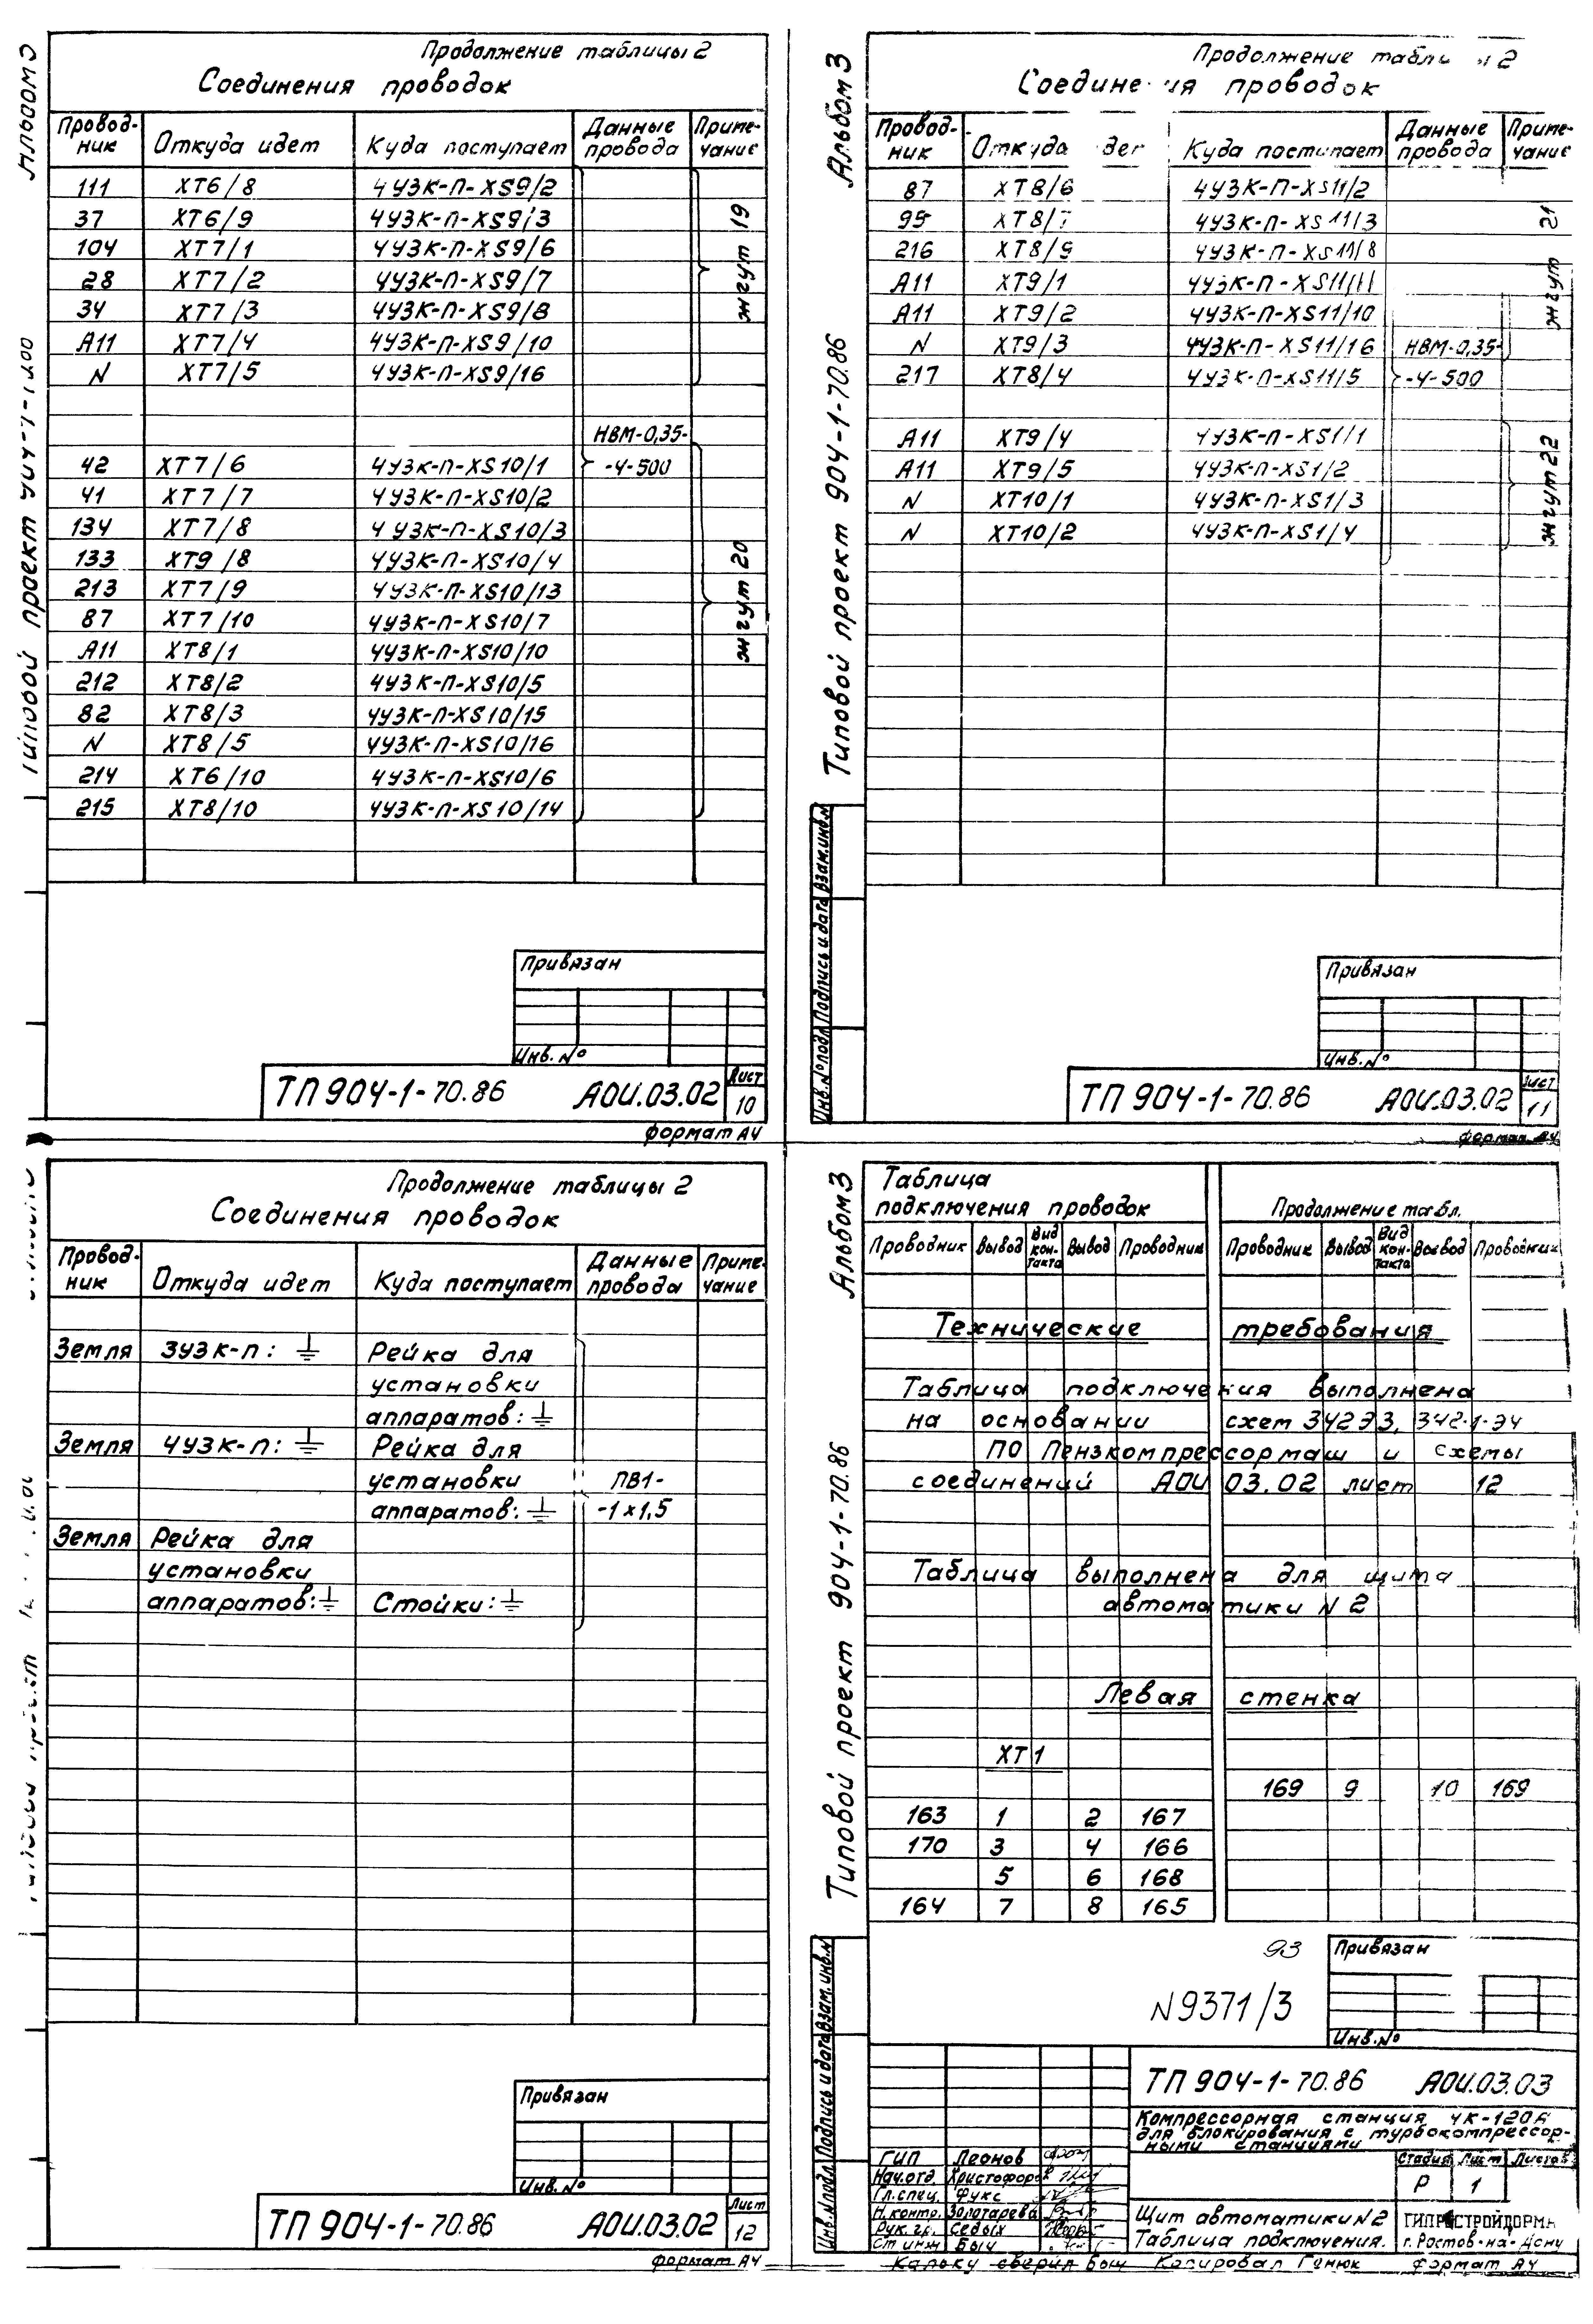 Продолжение таблицы 2
Соединения проводок
Провод-ник Откуда идет Куда поступает Данные провода Приме-чание
111 ХТ6/8 4УЗК-П-XS9/2
37 ХТ6/9 4УЗК-П-XS9/3
104 ХТ7/1 4УЗК-П-XS9/6
28 ХТ7/2 4УЗК-П-XS9/7
34 ХТ7/3 4УЗК-П-XS9/8
А11 ХТ7/4 4УЗК-П-XS9/10
N ХТ7/5 4УЗК-П-XS9/16
жгут 19
НВМ-0,35-
42 ХТ7/6 4УЗК-П-XS10/1 -4-500
41 ХТ7/7 4УЗК-П-XS10/2
134 ХТ7/8 4УЗК-П-XS10/3
133 ХТ9/8 4УЗК-П-XS10/4
213 ХТ7/9 4УЗК-П-XS10/13
87 ХТ7/10 4УЗК-П-XS10/7
А11 ХТ8/1 4УЗК-П-XS10/10
212 ХТ8/2 4УЗК-П-XS10/5
82 ХТ8/3 4УЗК-П-XS10/15
N ХТ8/5 4УЗК-П-XS10/16
214 ХТ6/10 4УЗК-П-XS10/6
215 ХТ8/10 4УЗК-П-XS10/14
жгут 20
Привязан
Инв. №
ТП 904-1-70.86 АОИ.03.02 Лист 10
формат А4
Альбом 3
Типовой проект 904-1-70.86
Продолжение таблицы 2
Соединения проводок
Провод-ник Откуда идет Куда поступает Данные провода Приме-чание
87 ХТ8/6 4УЗК-П-XS11/2
95 ХТ8/7 4УЗК-П-XS11/3
216 ХТ8/9 4УЗК-П-XS11/8
А11 ХТ9/1 4УЗК-П-XS11/11
А11 ХТ9/2 4УЗК-П-XS11/10
N ХТ9/3 4УЗК-П-XS11/16 НВМ-0,35-
217 ХТ8/4 4УЗК-П-XS11/5 -4-500
жгут 21
А11 ХТ9/4 4УЗК-П-XS1/1
А11 ХТ9/5 4УЗК-П-XS1/2
N ХТ10/1 4УЗК-П-XS1/3
N ХТ10/2 4УЗК-П-XS1/4
жгут 22
Инв. № подл. Подпись и дата Взам. инв. №
Привязан
Инв. №
ТП 904-1-70.86 АОИ.03.02 Лист 11
формат А4
Продолжение таблицы 2
Соединения проводок
Провод-ник Откуда идет Куда поступает Данные провода Приме-чание
Земля 3УЗК-П: ⏚ Рейка для
установки
аппаратов: ⏚
Земля 4УЗК-П: ⏚ Рейка для
установки ПВ1-
аппаратов: ⏚ -1×1,5
Земля Рейка для
установки
аппаратов: ⏚ Стойки: ⏚
Привязан
Инв. №
ТП 904-1-70.86 АОИ.03.02 Лист 12
формат А4
Альбом 3
Типовой проект 904-1-70.86
Таблица
подключения проводок Продолжение табл.
Проводник Вывод Вид кон-такта Вывод Проводник Проводник Вывод Вид кон-такта Вывод Проводник
Технические требования
Таблица подключения выполнена
на основании схем 342Э3, 342-1-Э4
ПО Пензкомпрессормаш и схемы
соединений АОИ 03.02 лист 12
Таблица выполнена для щита
автоматики N 2
Левая стенка
ХТ1
169 9 10 169
163 1 2 167
170 3 4 166
5 6 168
164 7 8 165
93
N9371/3
Инв. N подл. Подпись и дата Взам. инв. N
Привязан
Инв. №
ТП 904-1-70.86 АОИ.03.03
Компрессорная станция 4К-120А
для блокирования с турбокомпрессор-
ными станциями
ГИП Леонов
Нач.отд. Христофоров
Гл.спец. Фукс
Н.контр. Золотарева
Рук. гр. Седых
Ст инж Быч
Стадия Лист Листов
Р 1
Щит автоматики N 2
Таблица подключения.
ГИПРОСТРОЙДОРМАШ
г. Ростов-на-Дону
Кальку сверил Быч Копировал Генюк формат А4